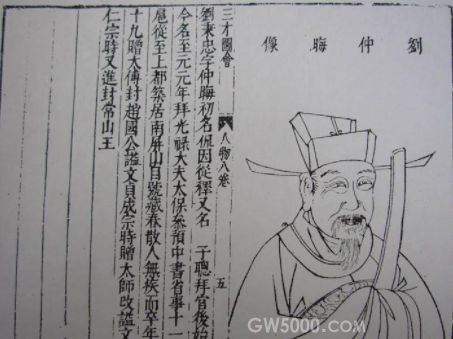 劉仲晦像
三才圖會 人物八卷 五
劉秉忠字仲晦初名侃因從釋又名 子聰拜官後始
今名至元元年拜光祿大夫太保參預中書省事十一
扈從至上都築居南屏山自號藏春散人無疾而卒年
十九贈太傅封趙國公謚文貞成宗時贈太師改謚文
仁宗時又進封常山王
GW5000.COM